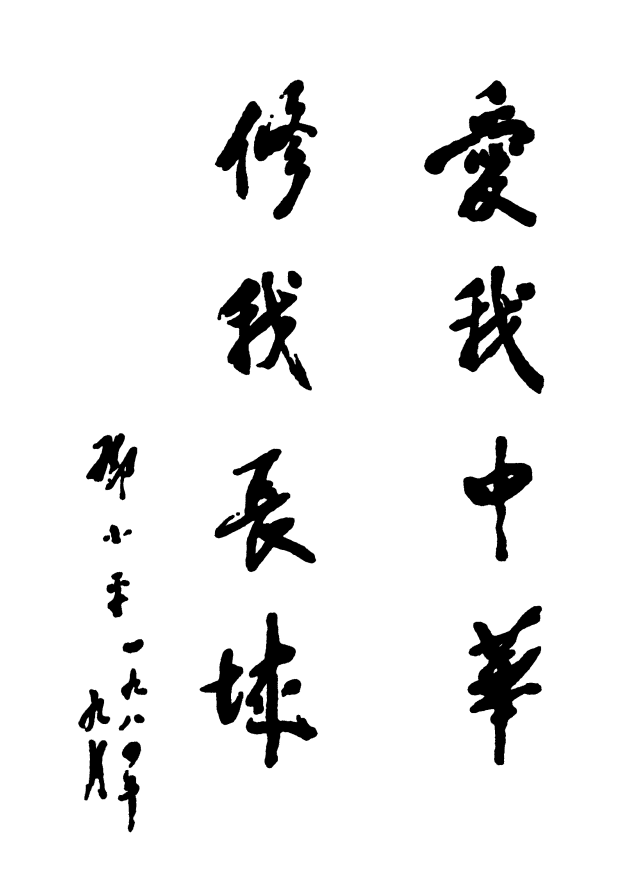 愛我中華
修我長城
鄧小平一九八四年
九月